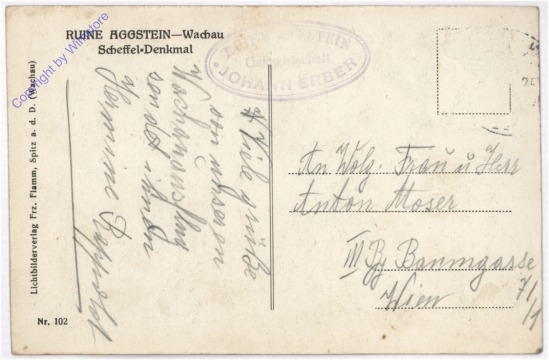 RUINE AGGSTEIN—Wachau
Scheffel-Denkmal
Copyright by Wildstore
JOHANN ERBER
Viele grüße
von unserem
Wachauausflug
sendet ihnen
Hermine
An Wolg. Frau u Herr
Anton Moser
III Bz Baumgasse
7/
Wien
Lichtbilderverlag Frz. Flamm, Spitz a. d. D. (Wachau)
Nr. 102